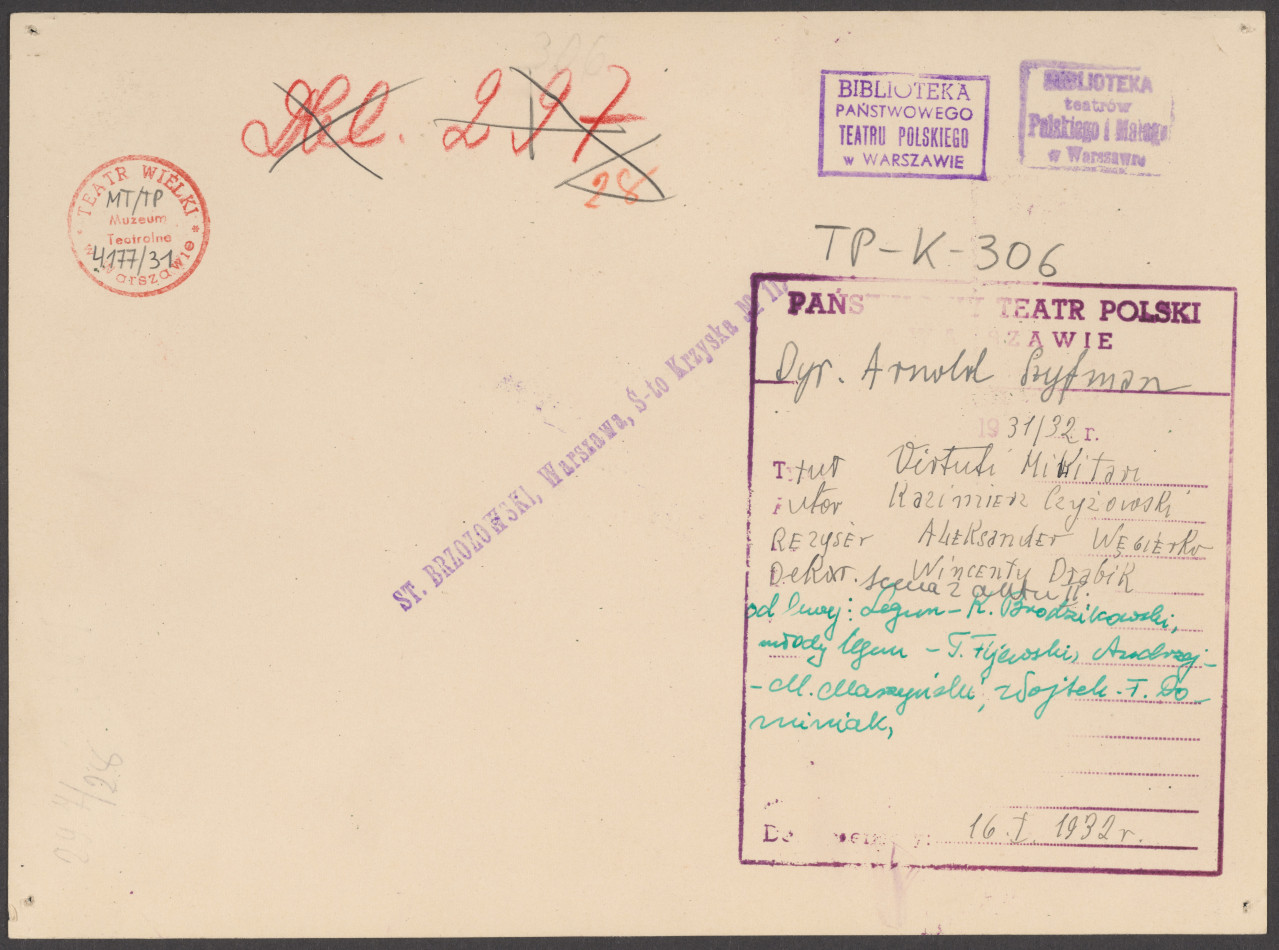 306
Kl. 297
28
BIBLIOTEKA
PAŃSTWOWEGO
TEATRU POLSKIEGO
w WARSZAWIE
BIBLIOTEKA
teatrów
Polskiego i Małego
w Warszawie
TEATR WIELKI
MT/TP
Muzeum
Teatralne
4177/31
w Warszawie
TP-K-306
ST. BRZOZOWSKI, Warszawa, S-to Krzyska № 11.
PAŃS Y TEATR POLSKI
W WARSZAWIE
Dyr. Arnold Szyfman
1931/32 r.
Tytuł Virtuti Militari
Autor Kazimierz Czyżowski
REŻYSER ALEKSANDER WĘGIERKO
Dekor. WINCENTY DRABIK
scena z aktu II.
od lewej: Legun - K. Brodzikowski,
młody legun - T. Fijewski, Andrzej -
- M. Maszyński, Wojtek - F. Do-
miniak,
16.I.1932 r.